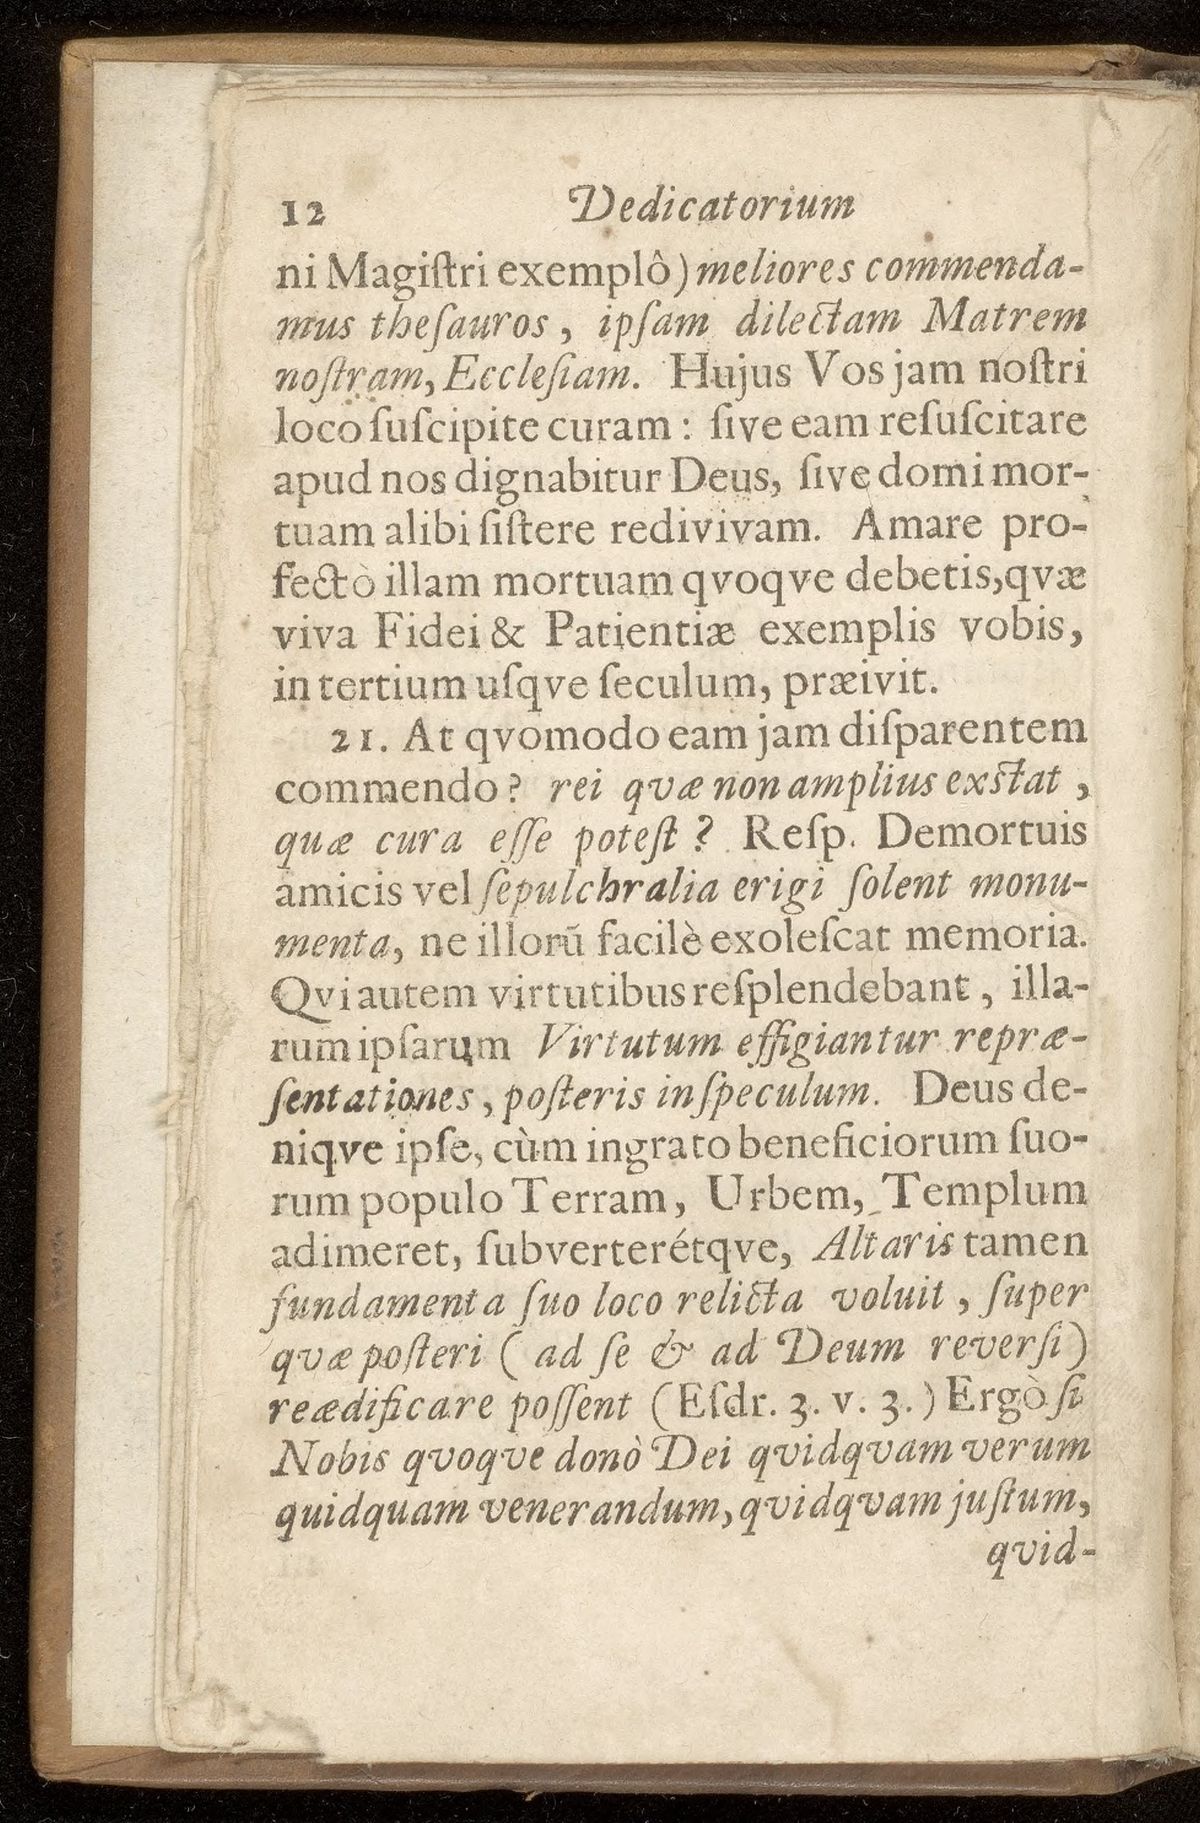 12 Dedicatorium
ni Magiſtri exemplô) meliores commenda-
mus theſauros, ipſam dilectam Matrem
noſtram, Eccleſiam. Hujus Vos jam noſtri
loco ſuſcipite curam: ſive eam reſuſcitare
apud nos dignabitur Deus, ſive domi mor-
tuam alibi ſiſtere redivivam. Amare pro-
fectò illam mortuam qvoqve debetis, qvæ
viva Fidei & Patientiæ exemplis vobis,
in tertium uſqve ſeculum, præivit.
21. At qvomodo eam jam diſparentem
commendo? rei qvæ non amplius exstat,
quæ cura eſſe poteſt? Reſp. Demortuis
amicis vel ſepulchralia erigi ſolent monu-
menta, ne illorū facilè exoleſcat memoria.
Qvi autem virtutibus reſplendebant, illa-
rum ipſarum Virtutum effigiantur repræ-
ſentationes, poſteris in ſpeculum. Deus de-
niqve ipſe, cùm ingrato beneficiorum ſuo-
rum populo Terram, Urbem, Templum
adimeret, ſubverterétqve, Altaris tamen
fundamenta ſuo loco relicta voluit, ſuper
qvæ poſteri (ad ſe & ad Deum reverſi)
reædificare poſſent (Eſdr. 3. v. 3.) Ergò ſi
Nobis qvoqve donò Dei qvidqvam verum
quidquam venerandum, qvidqvam juſtum,
qvid-